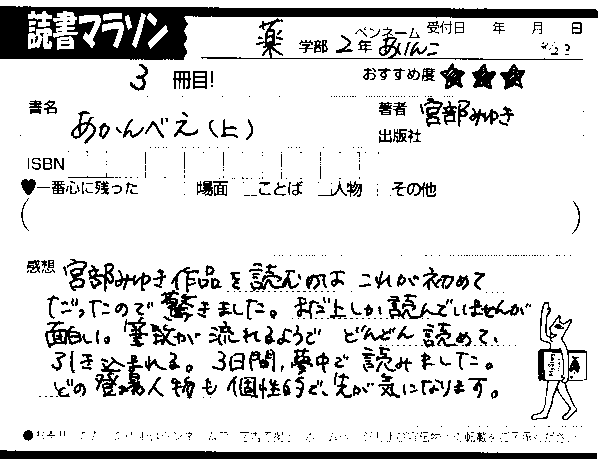 読書マラソン
薬 学部 2年 ペンネーム ありんこ 受付日 年 月 日
3 冊目! おすすめ度 ★★★
書名 あかんべえ(上) 著者 宮部みゆき
出版社
ISBN
♥一番心に残った 場面 ことば 人物 その他
感想 宮部みゆき作品を読むのは これが初めて
だったので驚きました。まだ上しか読んでいませんが
面白い。筆致が流れるようで どんどん読めて、
引き込まれる。3日間、夢中で読みました。
どの登場人物も個性的で、先が気になります。